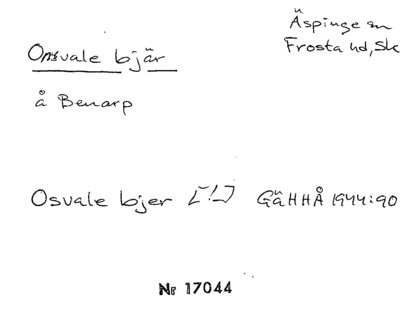 Onsvale bjär
Äspinge sn
Frosta hd, Sk
å Benarp
Osvale bjer [!] GäHHÅ 1944:90
Nr 17044